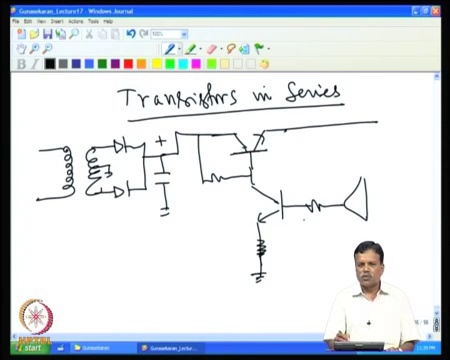 Gunasekaran_Lecture17 - Windows Journal
File Edit View Insert Actions Tools Help
100%
B I
Transistors in series
+
NPTEL
start
Gunasekaran
Gunasekaran_Lectu...